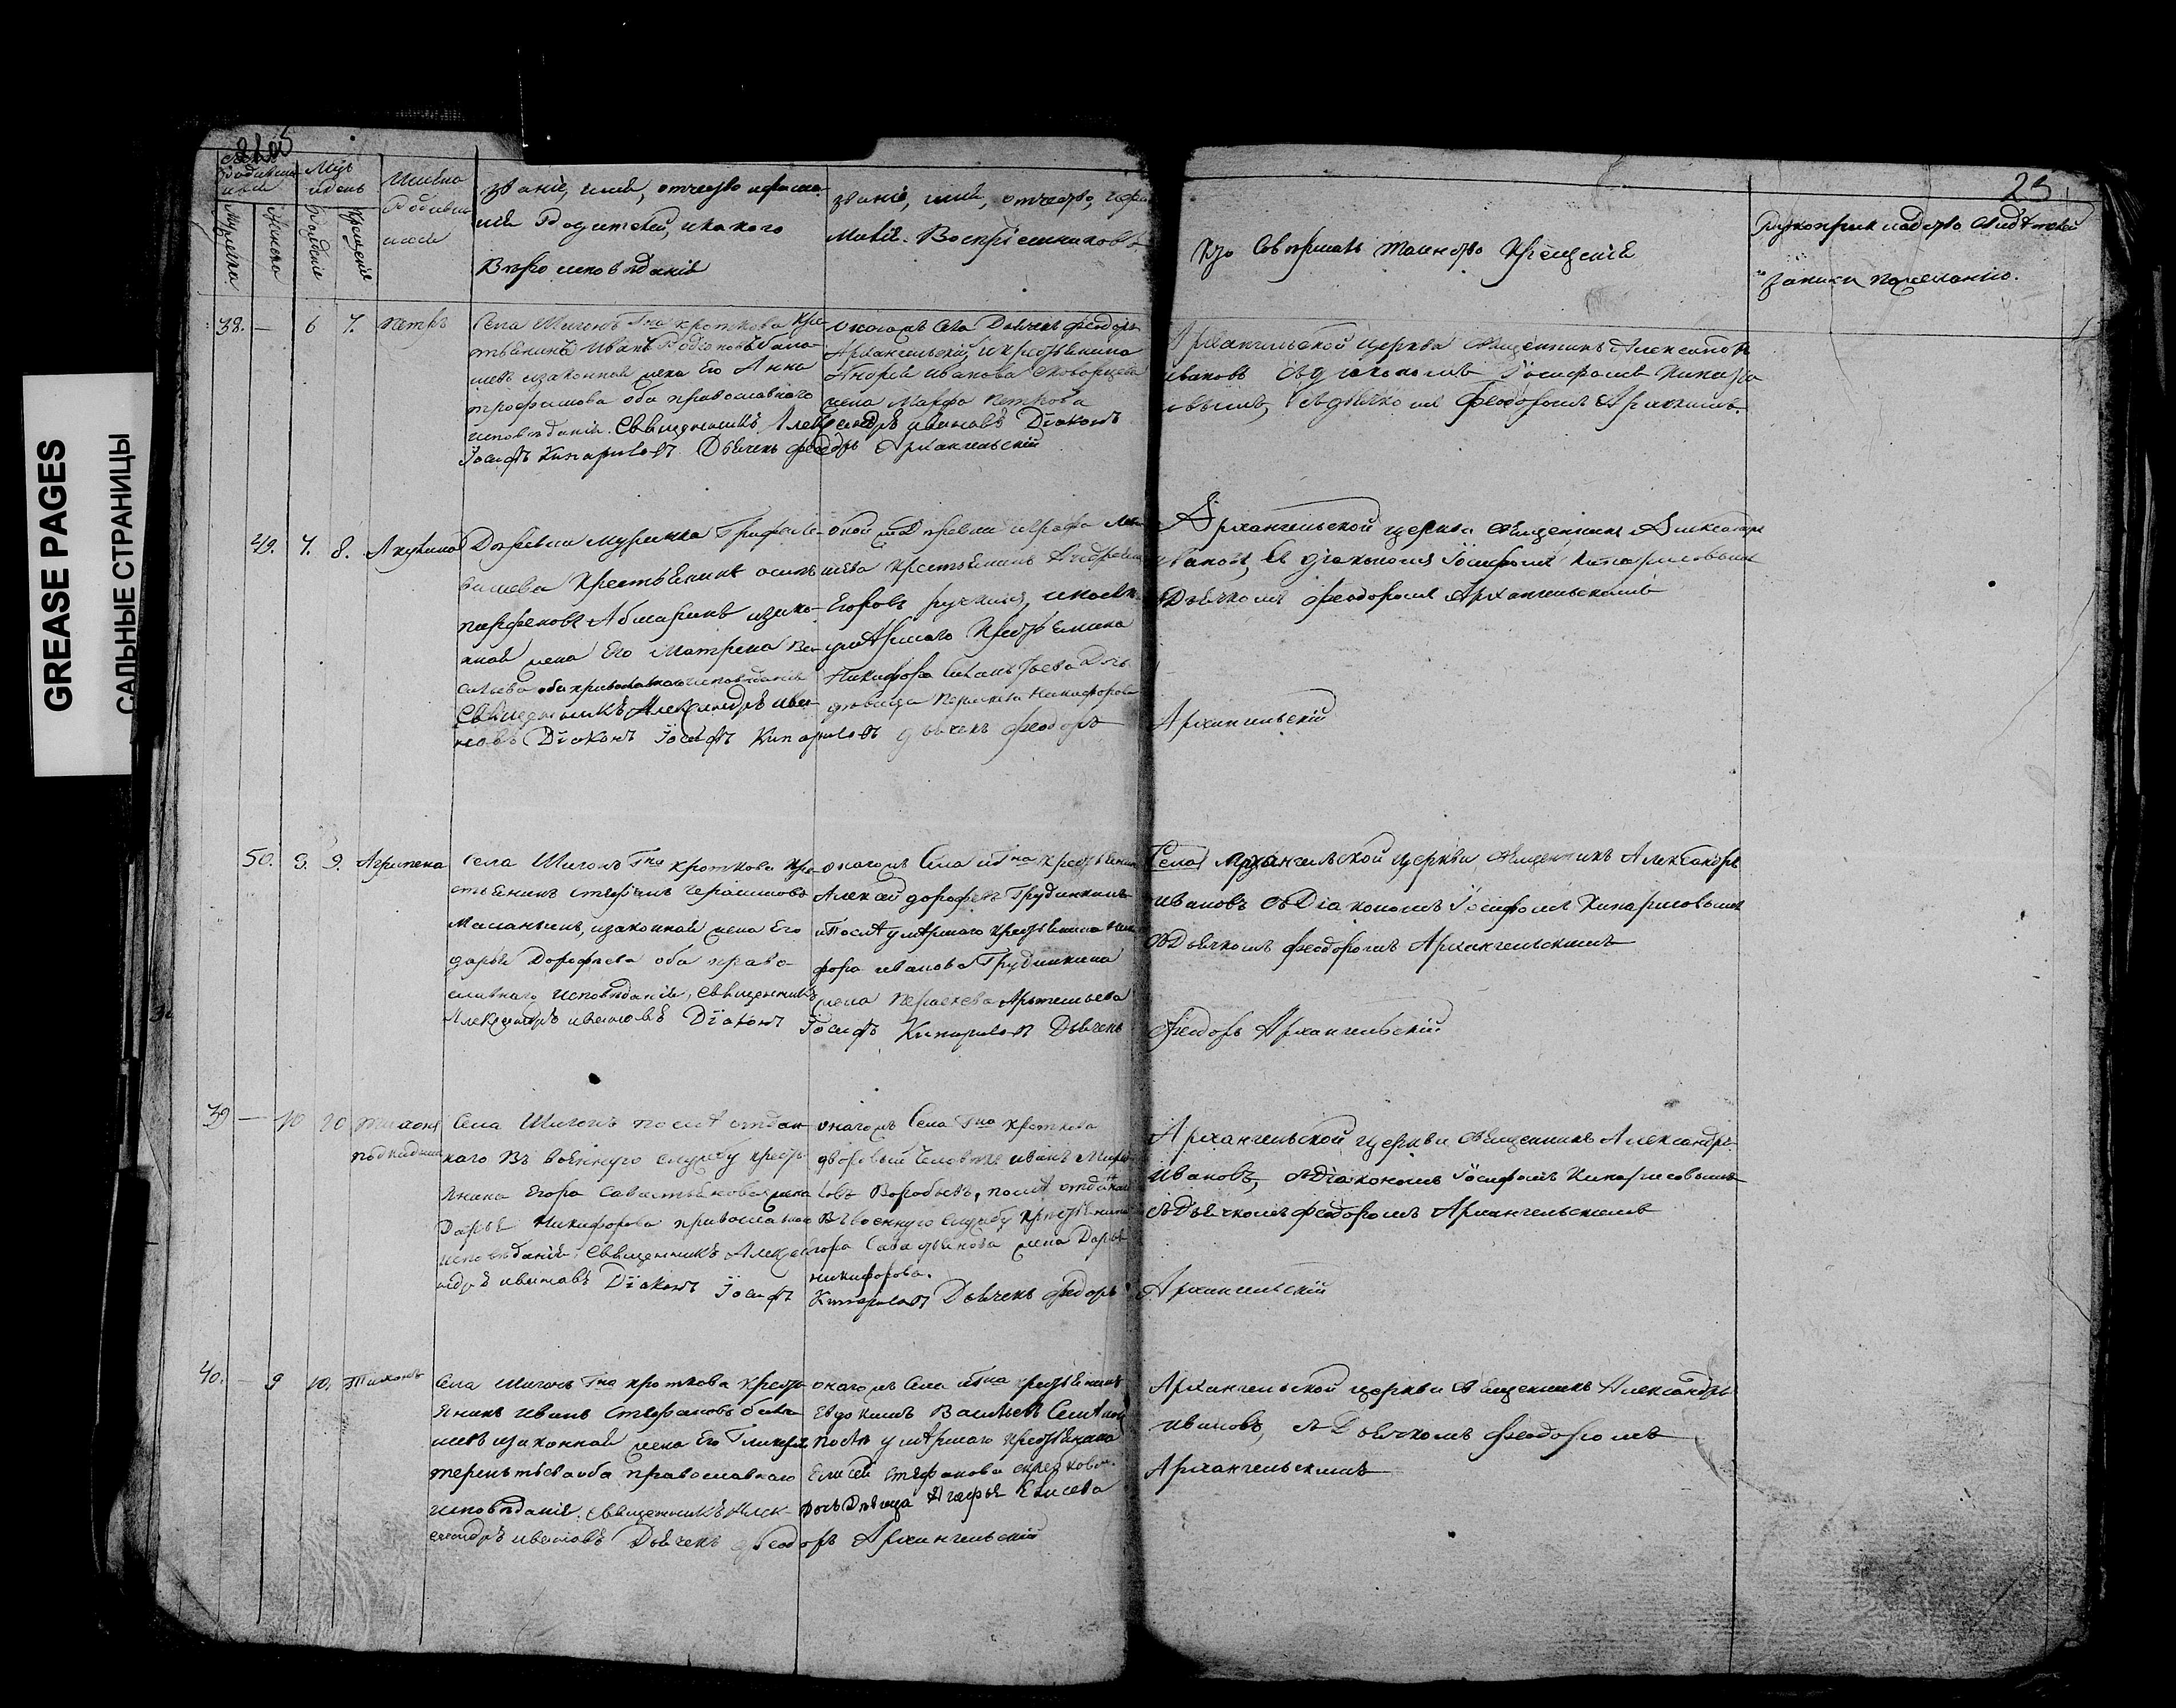 GREASE PAGES
САЛЬНЫЕ СТРАНИЦЫ
25
Мужска
Женска
Рожденіе
Крещенія
Имена
Родивш
званіе, имя, отчество и фами
лія Родителей, и какого
Вероисповѣданія
званіе, имя, отчество, и фа
милія. Воспріемниковъ
Кто Совершалъ таинство Крещенія
Рукоприкладство Свидѣтелей
записи по желанію.
38. — 6 7. Петръ
Села Шигонъ Гна Кроткова Кре
стьянинъ Иванъ Родіоновъ
и законная жена Его Анна
Трофимова оба православного
исповѣданія. Священникъ Александръ Ивановъ Діаконъ
Іосифъ Кипарисовъ Дьячекъ Феодоръ Архангельскій
оногожъ Села Дьячекъ Феодоръ
Архангельскій, и крестьянина
Андрея Иванова
жена Марфа Петрова
Архангельской церкви Священникъ Александръ
Ивановъ съ діакономъ Іосифомъ Кипарисо
вымъ, съ дьячкомъ Феодоромъ Архангель
49. 7. 8. Акулина
Деревни Муранка Графа
Крестьянинъ Осипъ
Парфеновъ и закон
ная жена Его Матрена Ва
сильева оба православнаго исповѣданія
Священникъ Александръ Ива
новъ Діаконъ Іосифъ Кипарисовъ дьячекъ Феодоръ
Архангельскій
оной же деревни Графа
крестьянинъ Андрей
Егоровъ и послѣ
умершаго Крестьянина
Никифора дочь
девица Никифорова
Архангельской церкви священникъ Александръ
Ивановъ, съ діакономъ Іосифомъ Кипарисовымъ
съ Дьячкомъ Феодоромъ Архангельскимъ
50. 9. 9. Агрипена
Села Шигонъ Гна Кроткова Кре
стьянинъ Стефанъ Герасимовъ
Маланьинъ, и законная жена Его
Дарья Дорофеева оба право
славнаго исповѣданія, Священникъ
Александръ Ивановъ Діаконъ Іосифъ Кипарисовъ Дьячекъ
Феодоръ Архангельскій
оногожъ Села Гна крестьянинъ
Алексей Дорофеевъ Грудинкинъ
и Послѣ умершаго крестьянина Ники
фора Иванова Грудинкина
жена Артемьева
Села Архангельской церкви, Священникъ Александръ
Ивановъ съ Діакономъ Іосифомъ Кипарисовымъ
съ Дьячкомъ Феодоромъ Архангельскимъ
39 — 10 10 Тихонъ
подкидыш
Села Шигонъ послѣ отдан
наго въ военную службу крест
янина Егора Савастьянова жена
Дарья Никифорова православнаго
исповѣданія. Священникъ Алекса
ндръ Ивановъ Діаконъ Іосифъ
Кипарисовъ Дьячекъ Феодоръ
Архангельскій
оногожъ Села Гна Кроткова
дворовый человѣкъ Иванъ
Воробьевъ, послѣ отданнаго
въ военную службу крестьянина
Егора Савастьянова жена Дарья
Никифорова.
Архангельской церкви Священникъ Александръ
Ивановъ, съ Діакономъ Іосифомъ Кипарисовымъ
съ Дьячкомъ Феодоромъ Архангельскимъ
40. — 9 10. Тихонъ
Села Шигонъ Гна Кроткова крест
янинъ Иванъ Стефановъ
и законная жена Его Гликерія
Терентьева оба православнаго
исповѣданія. Священникъ Алек
сандръ Ивановъ Дьячекъ Феодоръ Архангельскій
оногожъ Села Гна крестьянинъ
Евдокимъ Васильевъ
послѣ умершаго крестьянина
Елисея Стефанова
дочь Девица Агафья Елисева
Архангельской церкви Священникъ Александръ
Ивановъ, съ Дьячкомъ Феодоромъ
Архангельскимъ